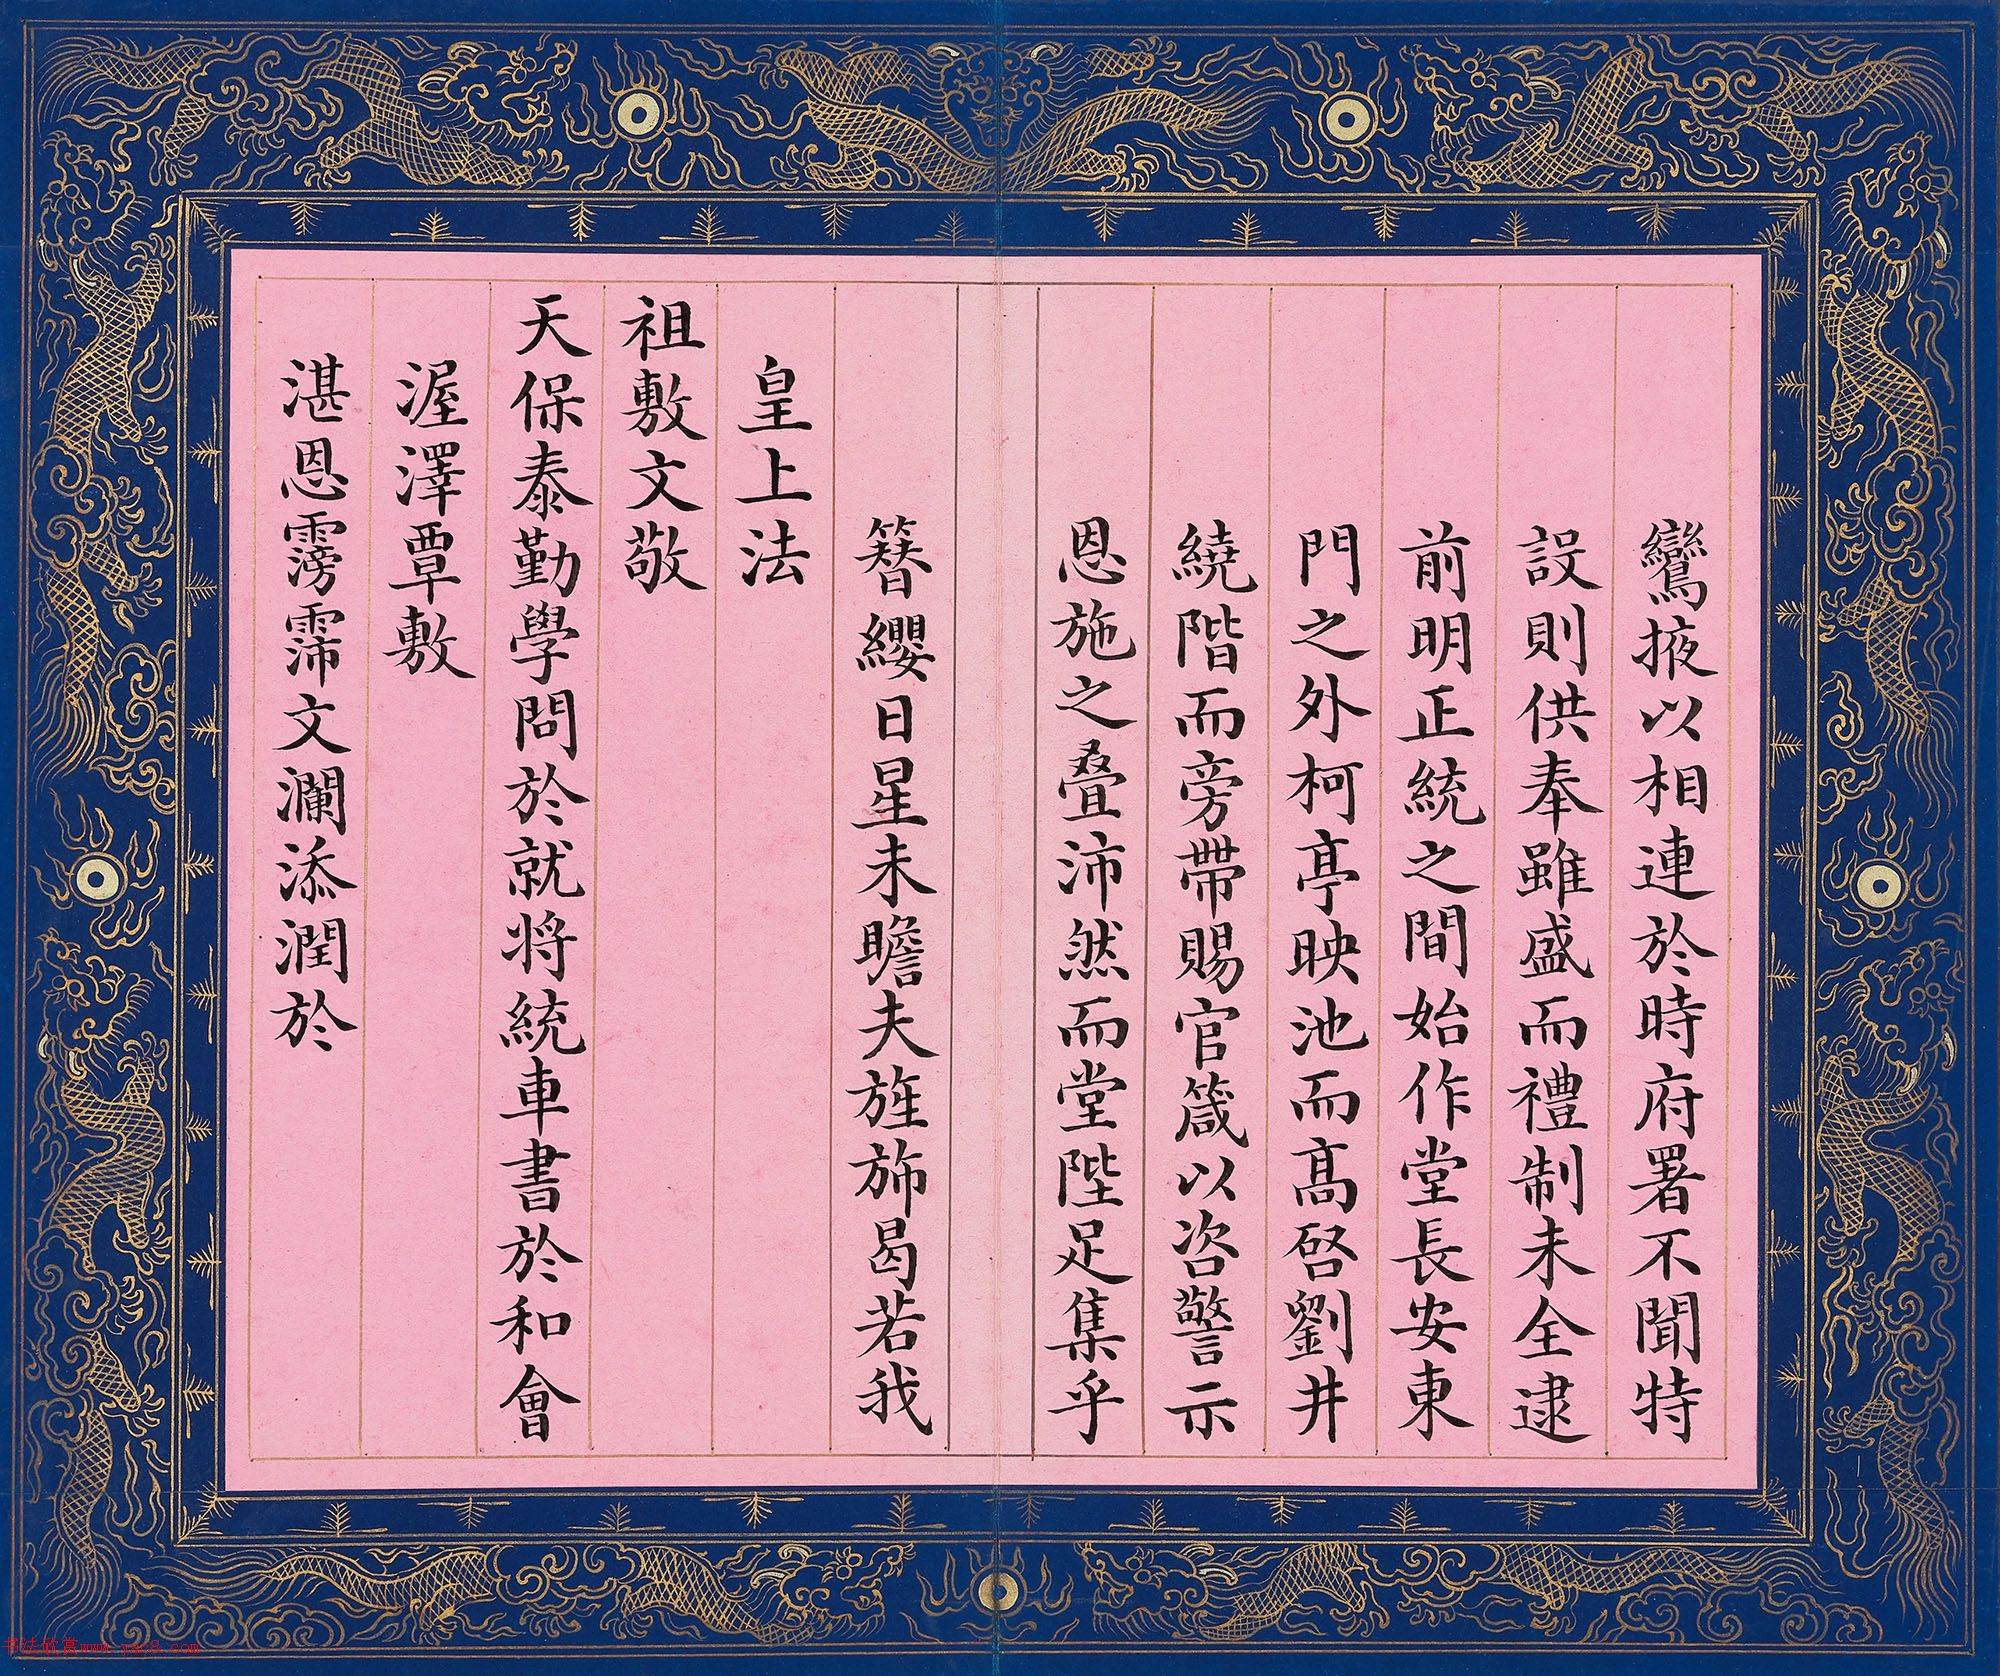 鸞掖以相連於時府署不聞特
設則供奉雖盛而禮制未全逮
前明正統之間始作堂長安東
門之外柯亭映池而高啓劉井
繞階而旁帶賜官箴以咨警示
恩施之疊沛然而堂陛足集乎
簪纓日星未瞻夫旌斾曷若我
皇上法
祖敷文敬
天保泰勤學問於就將統車書於和會
渥澤覃敷
湛恩霶霈文瀾添潤於
书法欣赏www.yac8.com